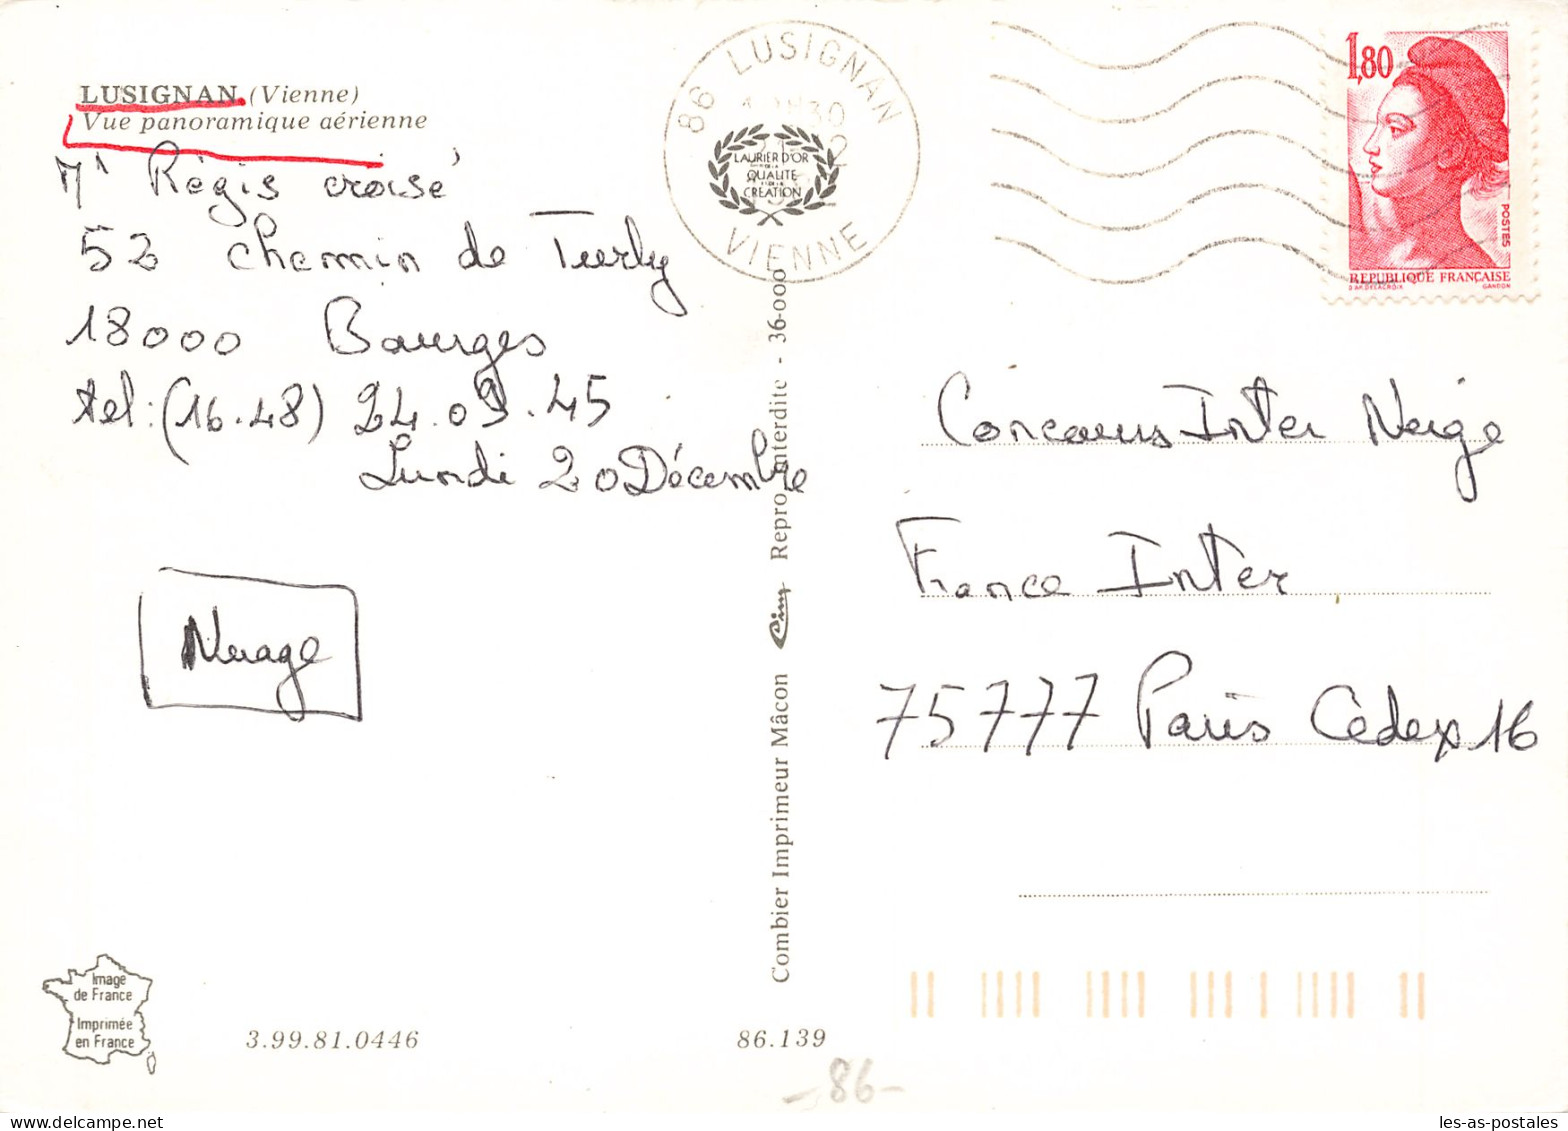 LUSIGNAN (Vienne)
Vue panoramique aérienne
Mr Régis croisé
52 Chemin de Turly
18000 Bourges
tel: (16.48) 24.09.45
Lundi 20 Décembre
Nuage
Image
de France
Imprimée
en France
3.99.81.0446
86.139
-86-
Combier Imprimeur Mâcon Cim Reproduction interdite - 36-000
86 LUSIGNAN
VIENNE
LAURIER D'OR
DE LA
QUALITE
ET DE LA
CREATION
1,80
POSTES
REPUBLIQUE FRANÇAISE
D'AP. DELACROIX
GANDON
Concours Inter Neige
France Inter
75777 Paris Cedex 16
les-as-postales